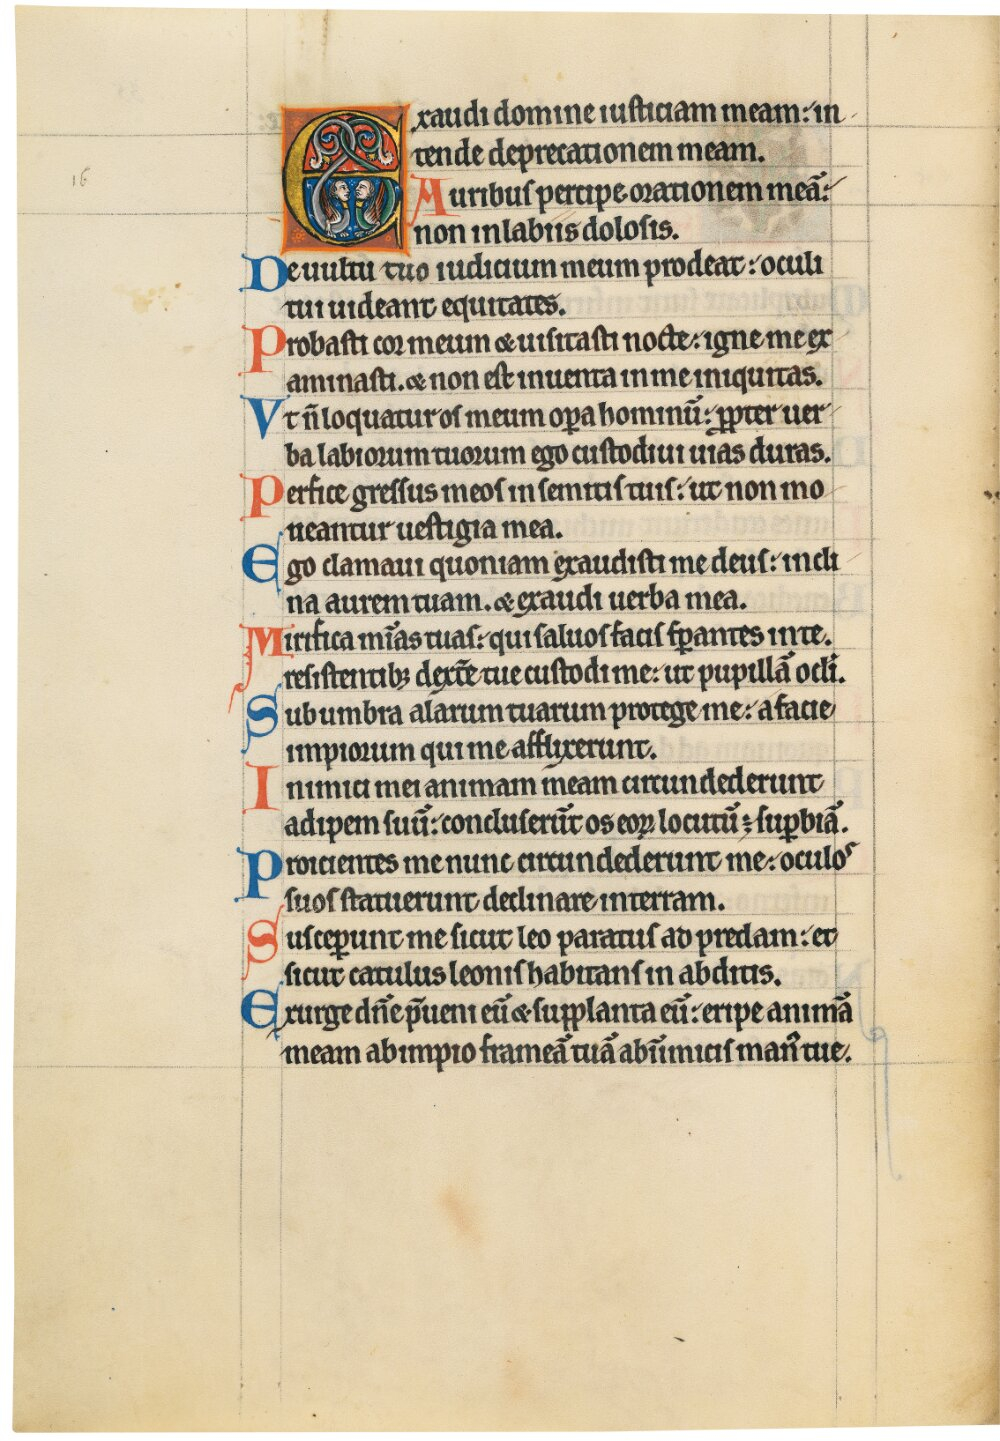 Exaudi domine iusticiam meam: in
tende deprecationem meam.
Auribus percipe orationem meā:
non in labiis dolosis.
De uultu tuo iudicium meum prodeat: oculi
tui uideant equitates.
Probasti cor meum & uisitasti nocte: igne me ex
aminasti. & non est inuenta in me iniquitas.
Vt n̄ loquatur os meum oꝑa hominū: ꝓpter uer
ba labiorum tuorum ego custodiui uias duras.
Perfice gressus meos in semitis tuis: ut non mo
ueantur uestigia mea.
Ego clamaui quoniam exaudisti me deus: incli
na aurem tuam. & exaudi uerba mea.
Mirifica mīas tuas: qui saluos facis sꝑantes in te.
resistentibꝫ dext̄e tue custodi me: ut pupillā ocl̄i.
Sub umbra alarum tuarum protege me: a facie
impiorum qui me afflixerunt.
Inimici mei animam meam circundederunt
adipem suū: concluserūt os eoꝝ locutū ÷ suꝑbiā.
Proicientes me nunc circundederunt me: oculos
suos statuerunt declinare in terram.
Susceꝑunt me sicut leo paratus ad predam: et
sicut catulus leonis habitans in abditis.
Exurge dn̄e p̄ueni eū & supplanta eū: eripe animā
meam ab impio frameā tuā ab inimicis man̄ tue.
16